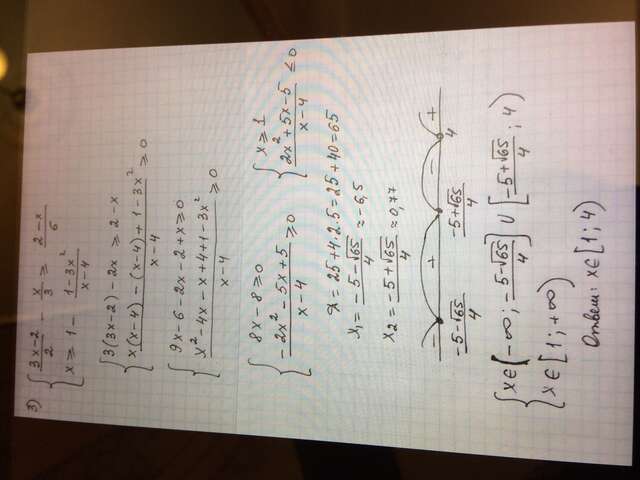 3) { (3x-2)/2 - x/3 ≥ (2-x)/6
{ x ≥ 1 - (1-3x²)/(x-4)
{ 3(3x-2) - 2x ≥ 2-x
{ (x(x-4) - (x-4) + 1-3x²)/(x-4) ≥ 0
{ 9x-6-2x-2+x ≥ 0
{ (x²-4x-x+4+1-3x²)/(x-4) ≥ 0
{ 8x-8 ≥ 0
{ (-2x²-5x+5)/(x-4) ≥ 0
{ x ≥ 1
{ (2x²+5x-5)/(x-4) ≤ 0
D = 25+4·2·5 = 25+40 = 65
x₁ = (-5-√65)/4 ≈ -6,5
x₂ = (-5+√65)/4 ≈ 0,77
- + - +
(-5-√65)/4 (-5+√65)/4 4
{ x ∈ (-∞; (-5-√65)/4] ∪ [(-5+√65)/4; 4)
{ x ∈ [1; +∞)
Ответ: x ∈ [1; 4)